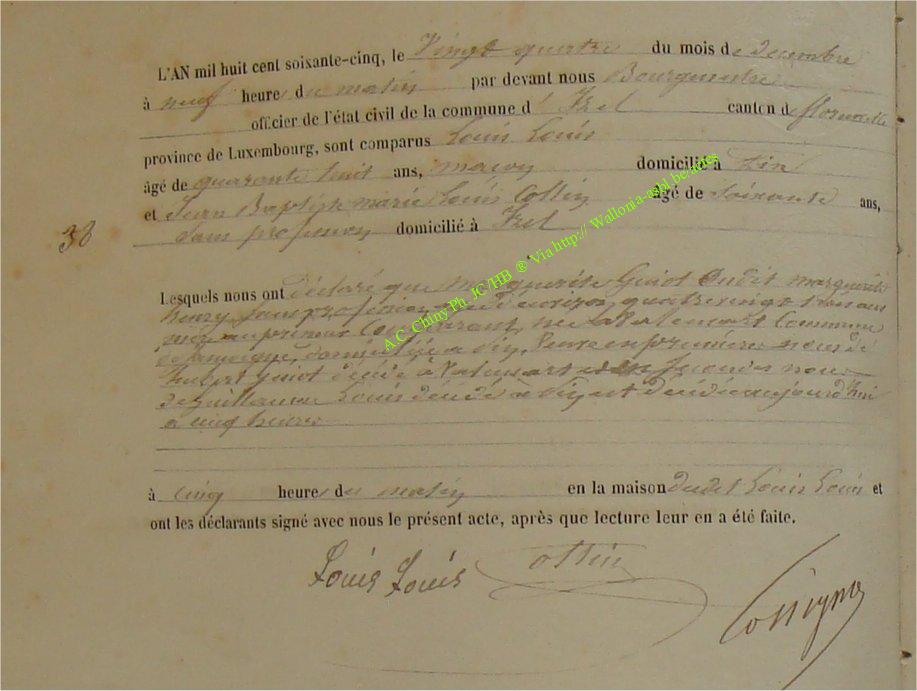 L'AN mil huit cent soixante-cinq, le Vingt quatre du mois de decembre
à neuf heure du matin par devant nous Bourgmestre
officier de l'état civil de la commune d' Izel canton de florenville
province de Luxembourg, sont comparus Louis Louis
âgé de quarante huit ans, maçon domicilié à
et Jean Baptiste marie Louis Collin âgé de soixante ans,
38
sans profession domicilié à Izel
A.C. Chiny Ph. JC/HB ® Via http:// Wallonia-asbl.be/actes
Lesquels nous ont déclaré que Marguerite Guiot Ondit marguerite
henry sans profession quatre vingt ans
commune
de Jamoigne, domiciliée a veuve en premières noces de
hubert Guiot décédé à noces
de Guillaume Louis décédé à est décédée aujourd'hui
a cinq heures
à cinq heures du matin en la maison dudit Louis Louis et
ont les déclarants signé avec nous le présent acte, après que lecture leur en a été faite.
Louis Louis Collin